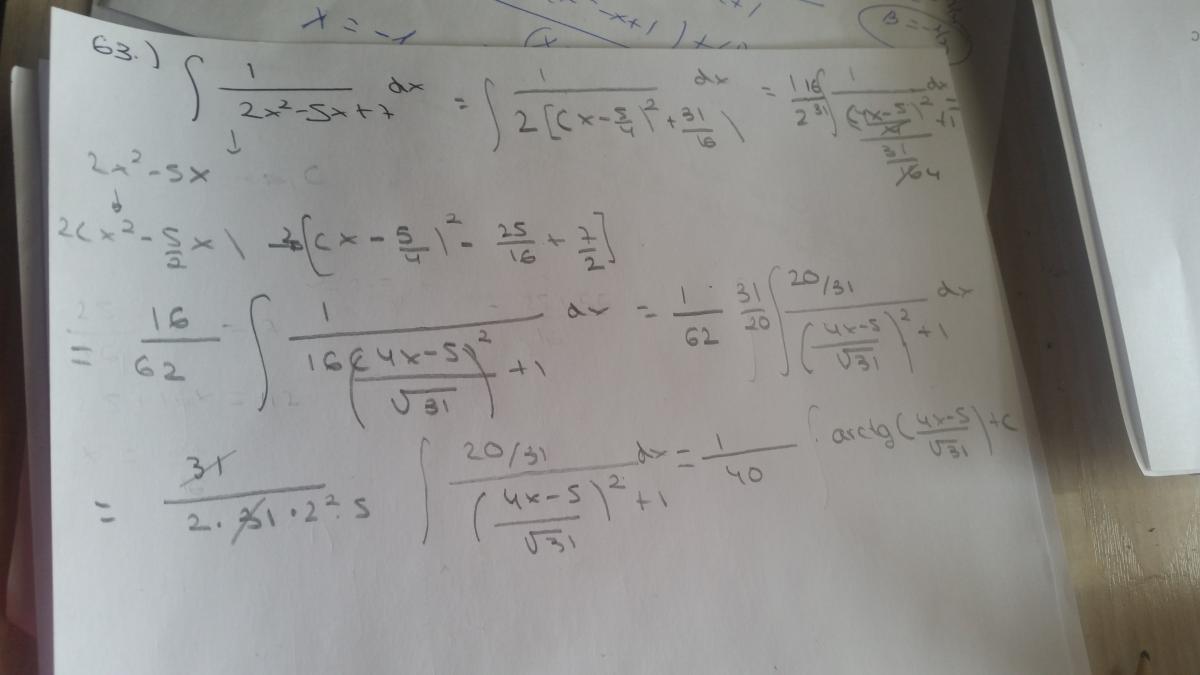 x = -1
63.) ∫ 1/(2x²-5x+7) dx = ∫ 1/(2[(x-5/4)²+31/16) dx = 1/2 16/31 ∫
↓
2x²-5x
↓
2(x²-5/2x) 2[(x-5/4)²-25/16+7/2]
= 16/62 ∫ 1/(16((4x-5)/√31)²+1) dx = 1/62 31/20 ∫ (20/31)/(((4x-5)/√31)²+1) dx
= 31/(2·31·2²·5) ∫ (20/31)/(((4x-5)/√31)²+1) dx = 1/40 arctg((4x-5)/√31)+c